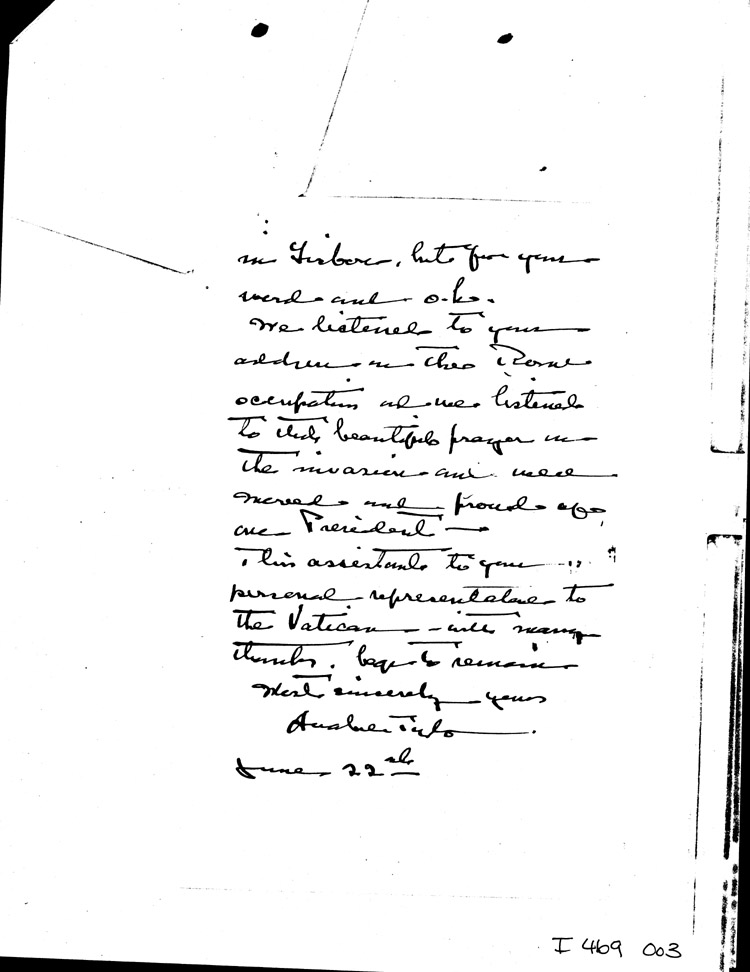 in Lisbon, but for your
word and o.k.
We listened to your
address on the Rome
occupation and we listened
to that beautiful prayer on
the invasion and were
moved and proud of
our President —
This assistant to your
personal representative to
the Vatican - with many
thanks, begs to remain
Most sincerely yours
June 22nd
I 469 003